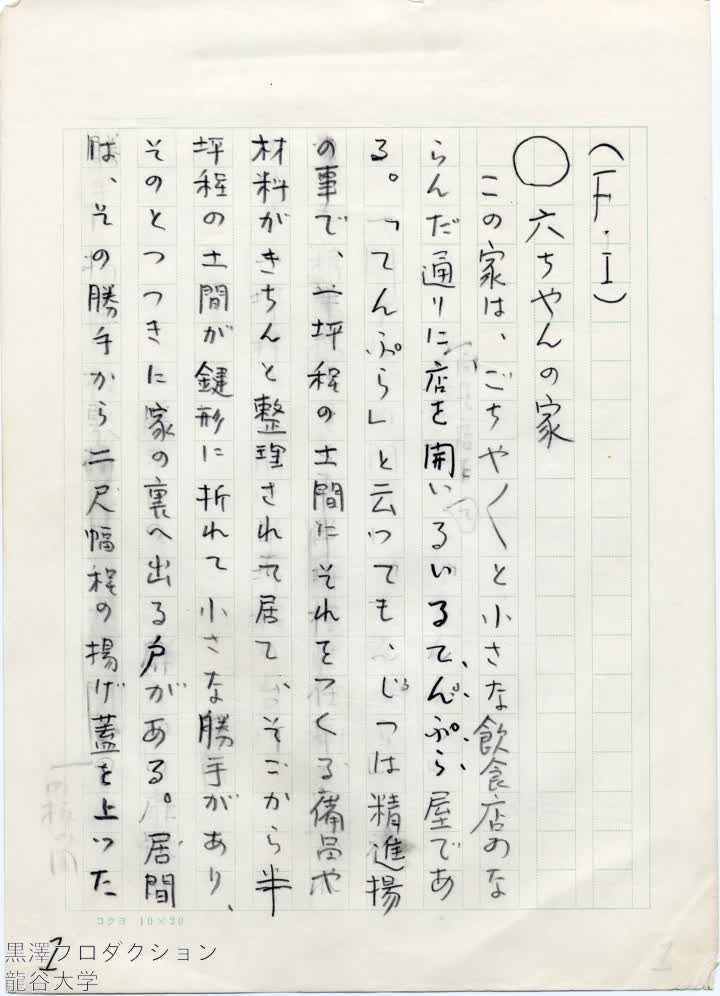 (F・I)
○六ちやんの家
この家は、ごちや〱と小さな飲食店のな
らんだ通りに店を開いるいるてんぷら屋であ
る。「てんぷら」と云つても、じつは精進揚
の事で、一坪程の土間にそれをつくる備品や
材料がきちんと整理されて居て、そこから半
坪程の土間が鍵形に折れて小さな勝手があり、
そのとつつきに家の裏へ出る戸がある。居間
は、その勝手から二尺幅程の揚げ蓋を上つた
コクヨ 10×20
1
黒澤プロダクション
龍谷大学